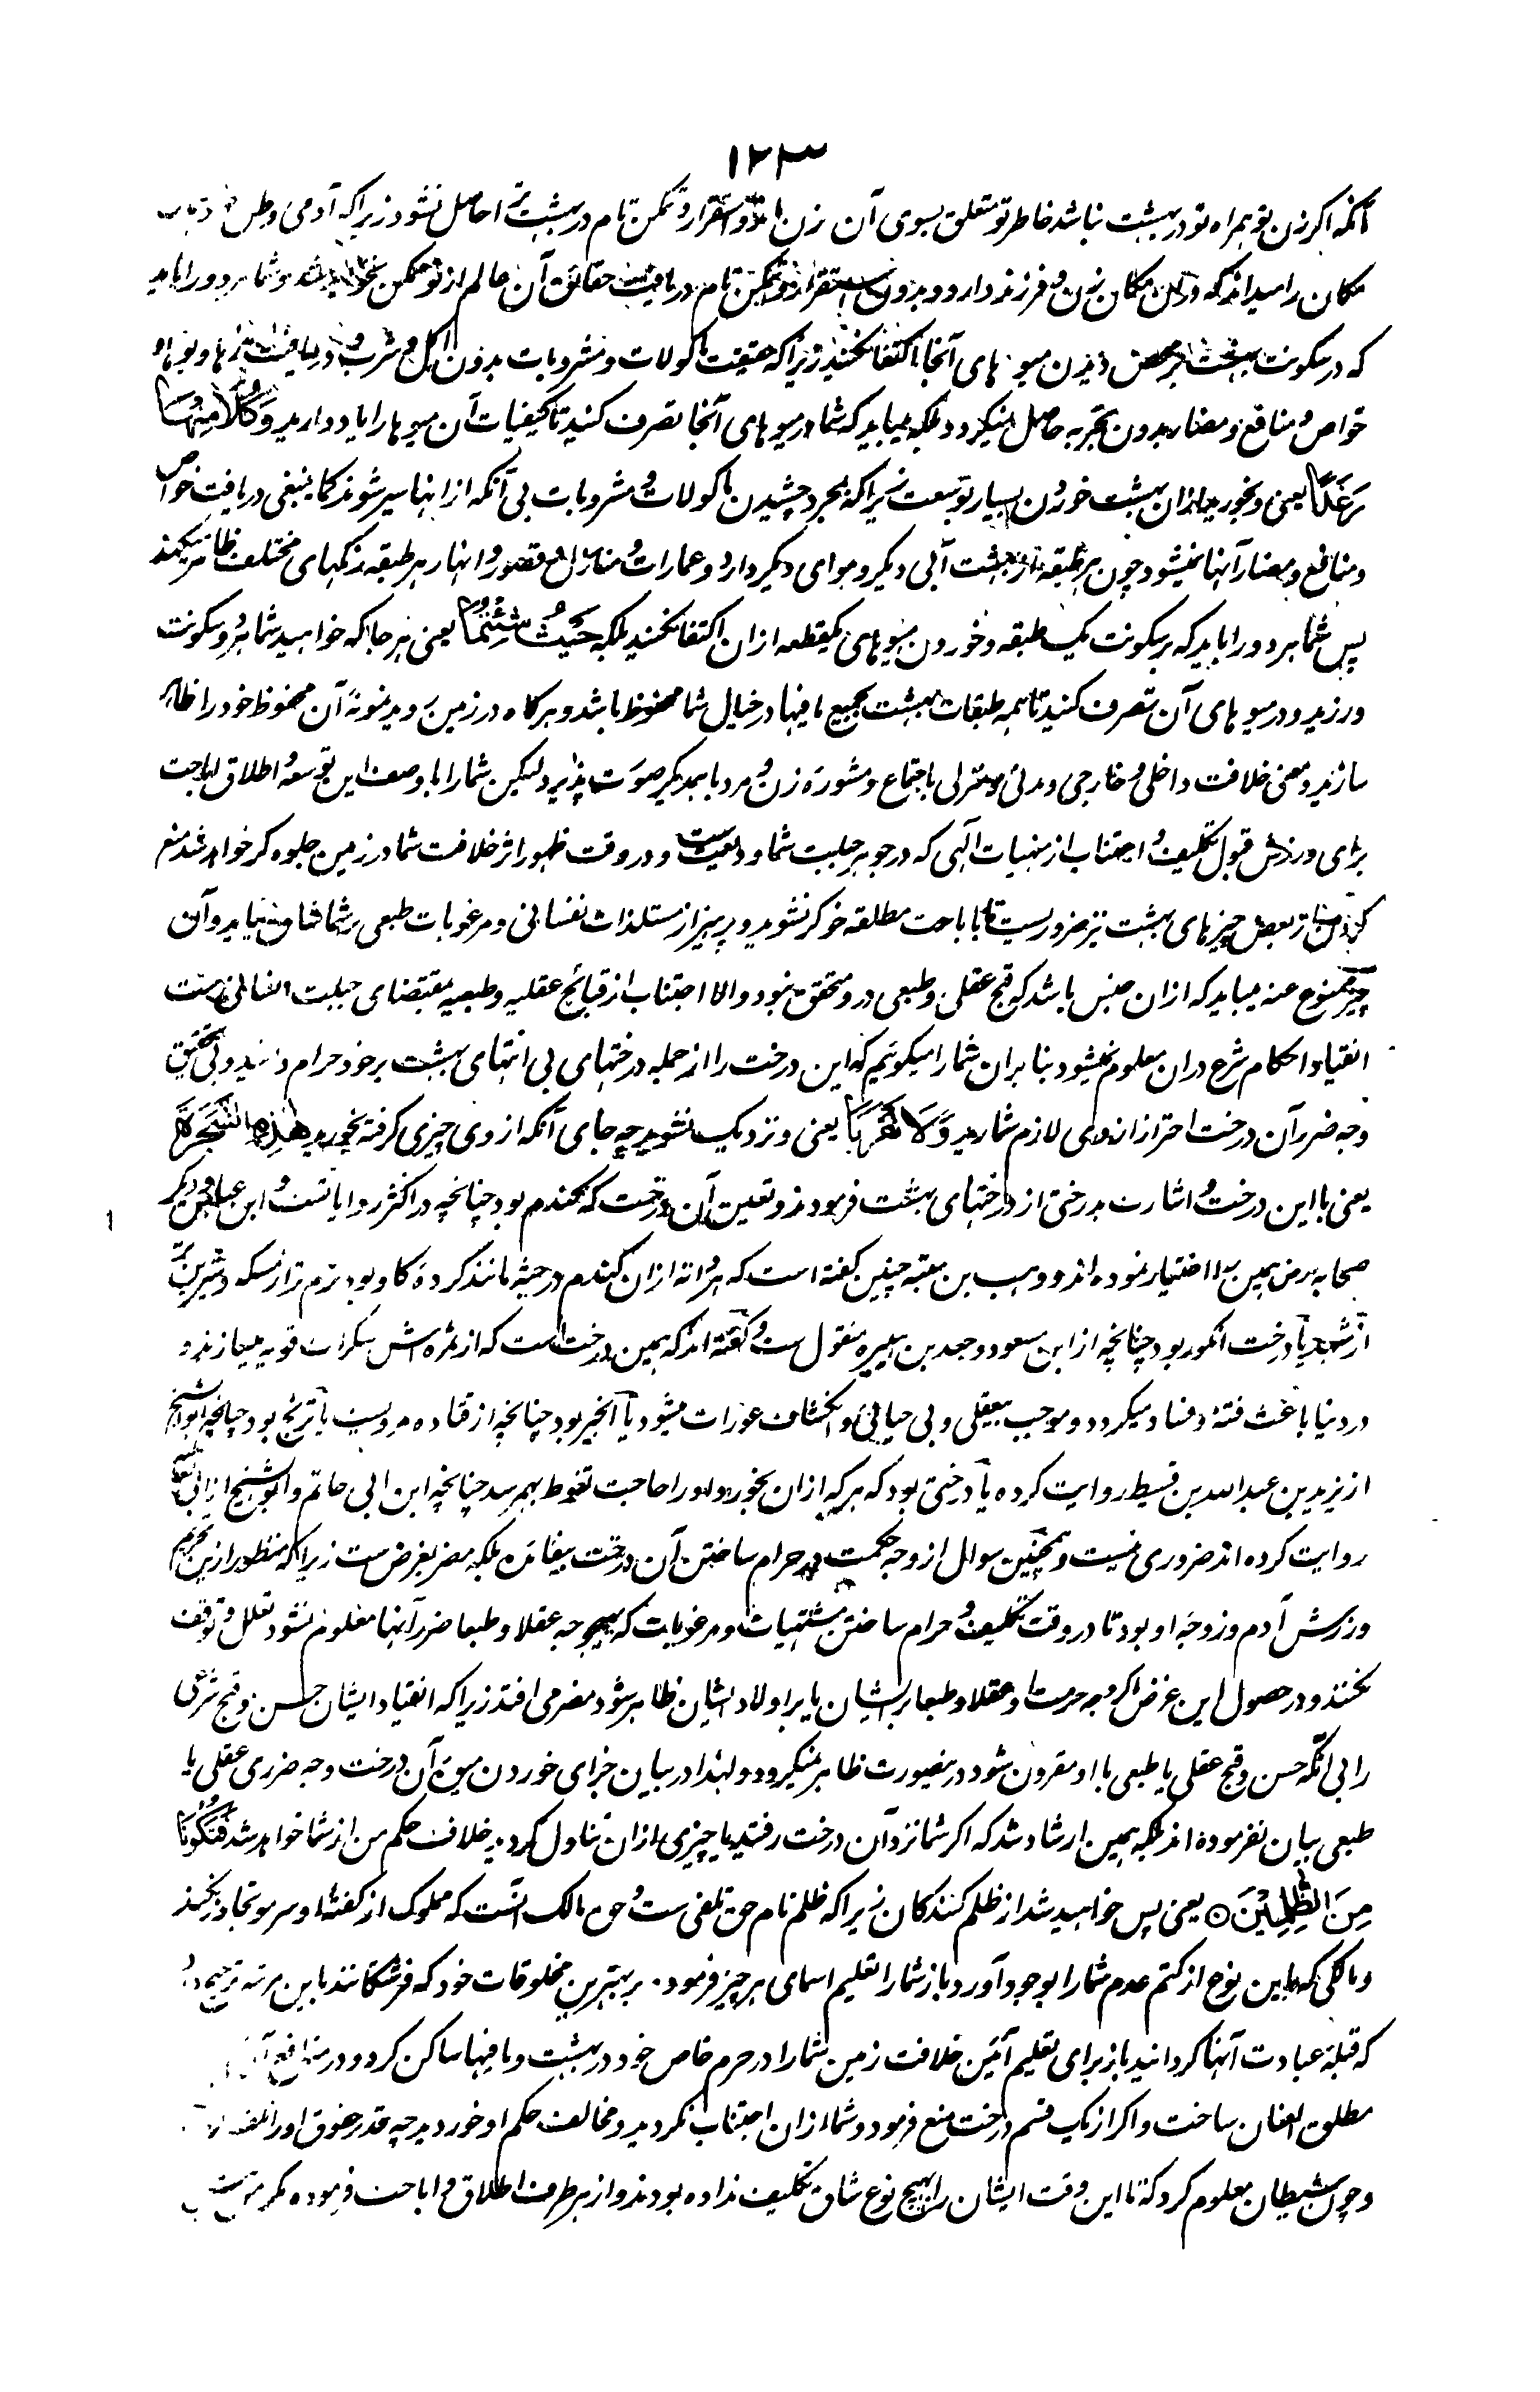 ۱۲۳
آنکه اگر زن تو همراه تو در بهشت نباشد خاطر تو متعلق بسوی آن زن ماند و استقرار و تمکن تام در بهشت ترا حاصل نشود زیراکه آدمی وطن
مکان را میداند که در آن مکان زن و فرزند دارد و بدون استقرار و تمکن تام دریافت حقائق آن عالم از تو ممکن نخواهد شد و شما هر دو را باید
که در سکونت بهشت بر محض دیدن میوه های آنجا اکتفا نکنید زیراکه حقیقت ماکولات و مشروبات بدون اکل و شرب و دریافت مزه ها و بوها و
خواص و منافع و مضار بدون تجربه حاصل نمیگردد بلکه میباید که شما در میوه های آنجا تصرف کنید تا کیفیات آن میوها را یاد دارید وَكُلَا مِنْهَا
رَغَدًا یعنی و بخورید ازان بهشت خوردن بسیار بتوسعت زیراکه بمجرد چشیدن ماکولات و مشروبات بی آنکه ازانها سیر شوند کما ینبغی دریافت خواص
و منافع و مضار آنها نمیشود چون هر طبقه از بهشت آبی دیگر و هوای دیگر دارد و عمارات و منازل و قصور و انهار هر طبقه رنگهای مختلف ظاهر میکند
پس شما هر دو را باید که بر سکونت یک طبقه و خوردن میوهای یکقطعه ازان اکتفا نکنید بلکه حَيْثُ شِئْتُمَا یعنی هر جا که خواهید شما هر دو سکونت
ورزید و در میوهای آن تصرف کنید تا همه طبقات بهشت بجمیع مافیها در خیال شما محفوظ باشد و هرگاه در زمین روید نمونهٔ آن محفوظ خود را ظاهر
سازید و معنی خلافت داخلی و خارجی و مدنی و منزلی باجتماع و مشورهٔ زن و مرد باهمدیگر صورت پذیرد لیکن شما را با وصف این توسعه و اطلاق اباحت
برای ورزش قبول تکلیف و اجتناب از منهیات الهی که در جوهر جبلت شما ودیعت ست و در وقت ظهور اثر خلافت شما در زمین جلوه گر خواهد شد منع
کردن از بعض چیزهای بهشت نیز ضروریست تا باباحت مطلقه خوگر نشوید و پرهیز از مستلذات نفسانی و مرغوبات طبعی بر شما شاق نیاید و آن
چیز ممنوع عنه میباید که ازان جنس باشد که قبح عقلی و طبعی درو متحقق نبود والا اجتناب از قبائح عقلیه و طبعیه مقتضای جبلت انسانی ست
انقیاد احکام شرع دران معلوم نمیشود بنا بران شما را میگوئیم که این درخت را از جمله درختهای بی انتهای بهشت بر خود حرام دانید و بی تحقیق
وجه ضرر آن درخت احتراز ازوی لازم شمارید وَلَا تَقْرَبَا یعنی و نزدیک نشوید چه جای آنکه ازوی چیزی گرفته بخورید هٰذِهِ الشَّجَرَةَ
یعنی با این درخت و اشارت بدرختی از درختهای بهشت فرمودند و تعیین آن درخت که گندم بود چنانچه در اکثر روایاتست و ابن عباس و دیگر
صحابه رض همین را اختیار نموده اند و وهب بن منبه چنین گفته است که هر دانه ازان گندم در جثه مانند گردهٔ گاو بود نرم تر از مسکه و شیرین تر
از شهد یا درخت انگور بود چنانچه از ابن مسعود و جعده بن هبیره منقول ست و گفته اند که همین درخت ست که از ثمره اش سکرات قویه میسازند و
در دنیا باعث فتنه و فساد میگردد و موجب بیعقلی و بی حیائی و انکشاف عورات میشود یا انجیر بود چنانچه از قتاده مرویست یا ترنج بود چنانچه ابوالشیخ
از یزید بن عبدالله بن قسیط روایت کرده یا درختی بود که هر که ازان بخورد او را حاجت تغوط بهم رسد چنانچه ابن ابی حاتم و ابوالشیخ از ابی
روایت کرده اند ضروری نیست و همچنین سوال از وجه حکمت در حرام ساختن آن درخت بیفائده بلکه مضر بغرض ست زیراکه منظور ازین تحریم
ورزش آدم و زوجهٔ او بود تا در وقت تکلیف و حرام ساختن مشتهیات و مرغوبات که بهیچ وجه عقلا و طبعا ضرر آنها معلوم نشود تعلل و توقف
نکنند و در حصول این غرض اگر وجه حرمت او عقلا و طبعا بر ایشان یا بر اولاد ایشان ظاهر شود مضر می افتد زیراکه انقیاد ایشان حسن و قبح شرعی
را بی آنکه حسن و قبح عقلی یا طبعی با او مقرون شود درینصورت ظاهر نمیگردد و لهذا در بیان جزای خوردن میوهٔ آن درخت وجه ضرری عقلی یا
طبعی بیان نفرموده اند بلکه همین ارشاد شد که اگر شما نزد آن درخت رفتید یا چیزی ازان تناول کردید خلاف حکم من از شما خواهد شد فَتَكُونَا
مِنَ الظّٰلِمِيْنَ ۝ یعنی پس خواهید شد از ظلم کنندگان زیراکه ظلم نام حق تلفی ست و حق مالک آنست که مملوک از گفتهٔ او سر مو تجاوز نکند
و مالکی که باین نوع از کتم عدم شما را بوجود آورد باز شما را تعلیم اسمای هر چیز فرمود بر بهترین مخلوقات خود که فرشتگانند باین مرتبه ترجیح داد
که قبلهٔ عبادت آنها گردانید باز برای تعلیم آئین خلافت زمین شما را در حرم خاص خود در بهشت و مافیها ساکن کرد و در منافع
مطلق العنان ساخت و اگر از یک قسم درخت منع فرمود و شما ازان اجتناب نکردید و مخالف حکم او خوردید چه قدر حقوق او را تلف
و چون شیطان معلوم کرد که تا این وقت ایشان را هیچ نوع شاق تکلیف نداده بودند و از هر طرف اطلاق و اباحت فرموده مگر